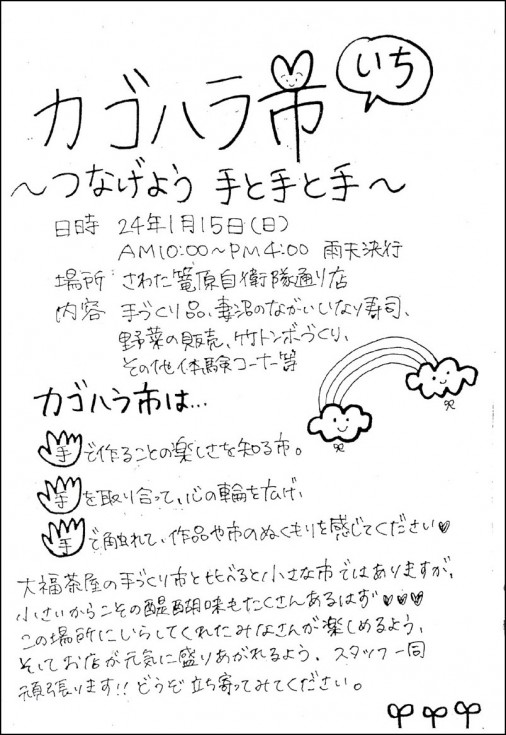 カゴハラ市
いち
～つなげよう 手と手と手～
日時 24年1月15日(日)
AM10:00～PM4:00 雨天決行
場所 さわた篭原自衛隊通り店
内容 手づくり品、妻沼のながいいなり寿司、
野菜の販売、竹トンボづくり、
その他体験コーナー等
カゴハラ市は…
手で作ることの楽しさを知る市。
手を取り合って、心の輪を広げ、
手で触れて、作品や市のぬくもりを感じてください♥
大福茶屋の手づくり市と比べると小さな市ではありますが、
小さいからこその醍醐味もたくさんあるはず♥♥♥
この場所にいらしてくれたみなさんが楽しめるよう、
そしてお店が元気に盛りあがれるよう、スタッフ一同
頑張ります!!どうぞ立ち寄ってみてください。